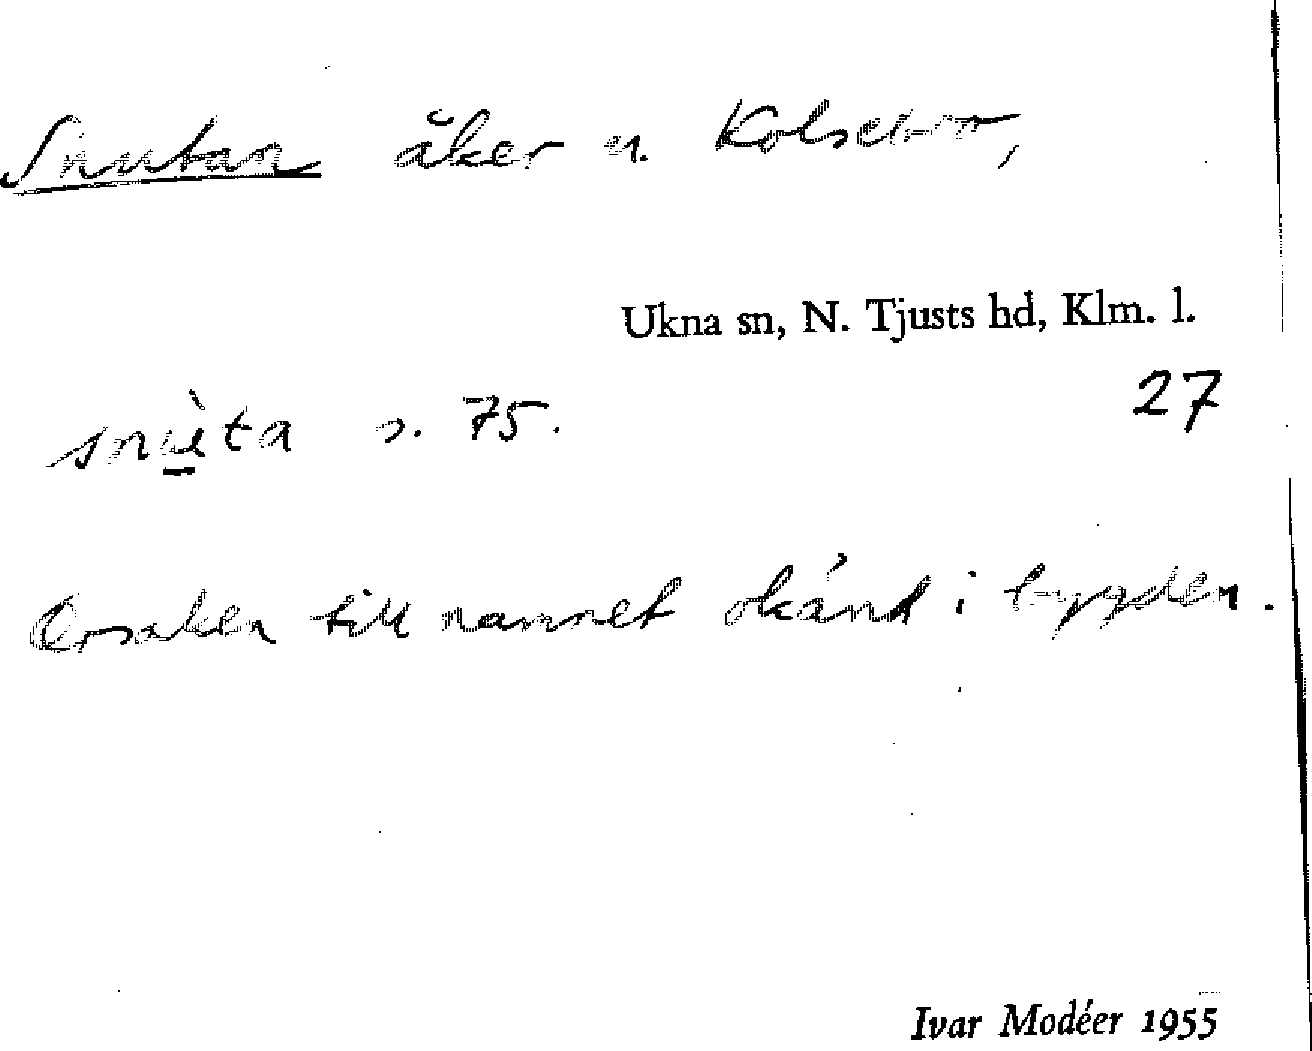 Snutan åker u. Kolsebro,
Ukna sn, N. Tjusts hd, Klm. l.
27
s. 75.
Orsaken till namnet okänd i bygden.
Ivar Modéer 1955